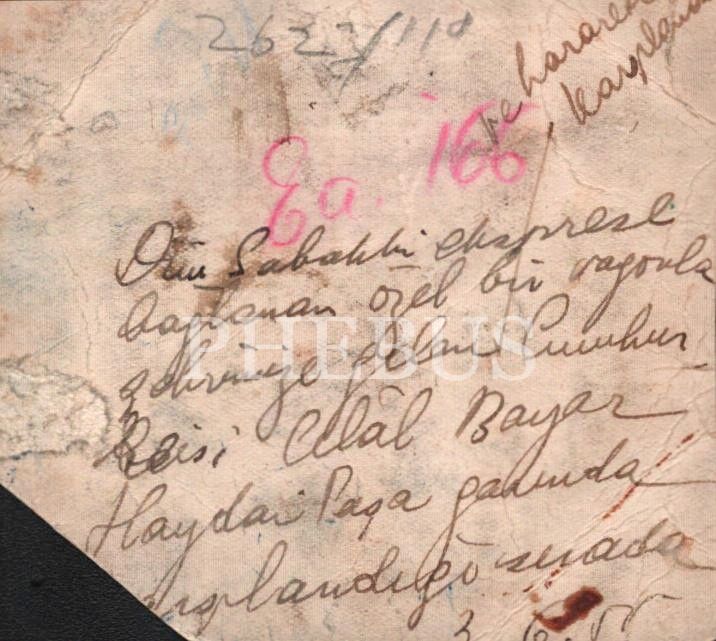 2622/110
ve hararetle
karşılandı
Ea. 166
Dün Sabahki ekspresle
bağlanan özel bir vagonla
şehrimize gelen Cumhur
Reisi Celâl Bayar
Haydar Paşa garında
karşılandığı sırada
PHEBUS